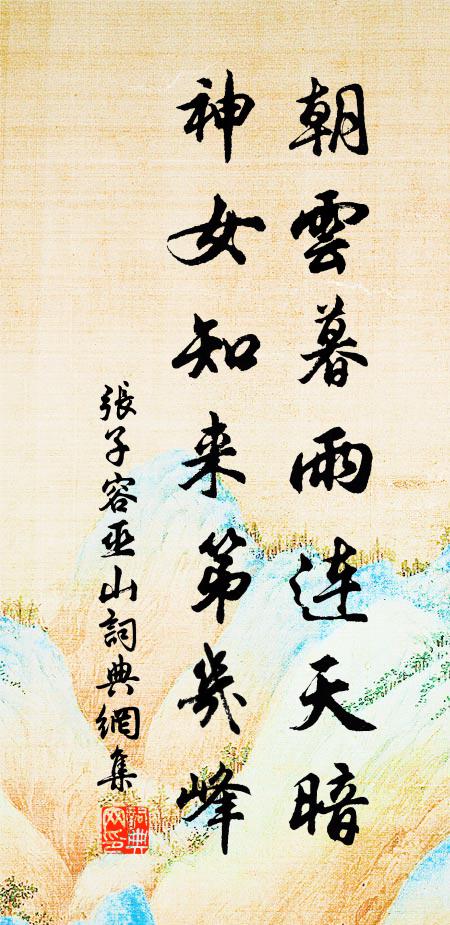 朝雲暮雨連天暗
神女知来第幾峰
張子容巫山詞典網集
詞典网印